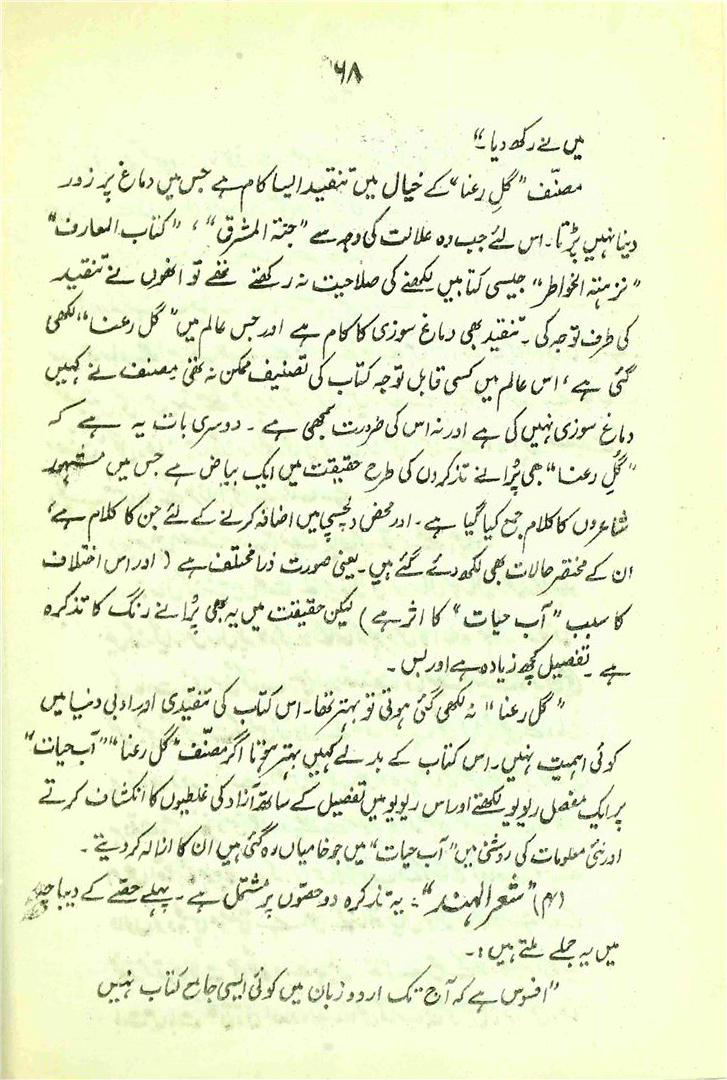 ۶۸
میں نے رکھ دیا۔“
مصنّف ”گلِ رعنا“ کے خیال میں تنقید ایسا کام ہے جس میں دماغ پر زور
دینا نہیں پڑتا۔ اس لئے جب وہ علالت کی وجہ سے ”جنۃ المشرق“، ”کتاب المعارف“
”نزہتہ الخواطر“ جیسی کتابیں لکھنے کی صلاحیت نہ رکھتے تھے تو انھوں نے تنقید
کی طرف توجہ کی۔ تنقید بھی دماغ سوزی کا کام ہے اور جس عالم میں ”گل رعنا“ لکھی
گئی ہے، اس عالم میں کسی قابل توجہ کتاب کی تصنیف ممکن نہ تھی مصنف نے کہیں
دماغ سوزی نہیں کی ہے اور نہ اس کی ضرورت سمجھی ہے۔ دوسری بات یہ ہے کہ
”گلِ رعنا“ بھی پُرانے تذکروں کی طرح حقیقت میں ایک بیاض ہے جس میں مشہور
شاعروں کا کلام جمع کیا گیا ہے۔ اور محض دلچسپی میں اضافہ کرنے کے لئے جن کا کلام ہے،
ان کے مختصر حالات بھی لکھ دئے گئے ہیں۔ یعنی صورت ذرا مختلف ہے (اور اس اختلاف
کا سبب ”آب حیات“ کا اثر ہے) لیکن حقیقت میں یہ بھی پُرانے رنگ کا تذکرہ
ہے۔ تفصیل کچھ زیادہ ہے اور بس۔
”گل رعنا“ نہ لکھی گئی ہوتی تو بہتر تھا۔ اس کتاب کی تنقیدی اور ادبی دنیا میں
کوئی اہمیت نہیں۔ اس کتاب کے بدلے کہیں بہتر ہوتا اگر مصنّف ”گل رعنا“ ”آب حیات“
پر ایک مفصل ریویو لکھتے اور اس ریویو میں تفصیل کے ساتھ آزاد کی غلطیوں کا انکشاف کرتے
اور نئی معلومات کی روشنی میں ”آب حیات“ میں جو خامیاں رہ گئی ہیں ان کا ازالہ کر دیتے۔
(۴) ”شعر الہند“: یہ تذکرہ دو حصّوں پر مشتمل ہے۔ پہلے حصّے کے دیباچہ
میں یہ جملے ملتے ہیں:۔
”افسوس ہے کہ آج تک اردو زبان میں کوئی ایسی جامع کتاب نہیں